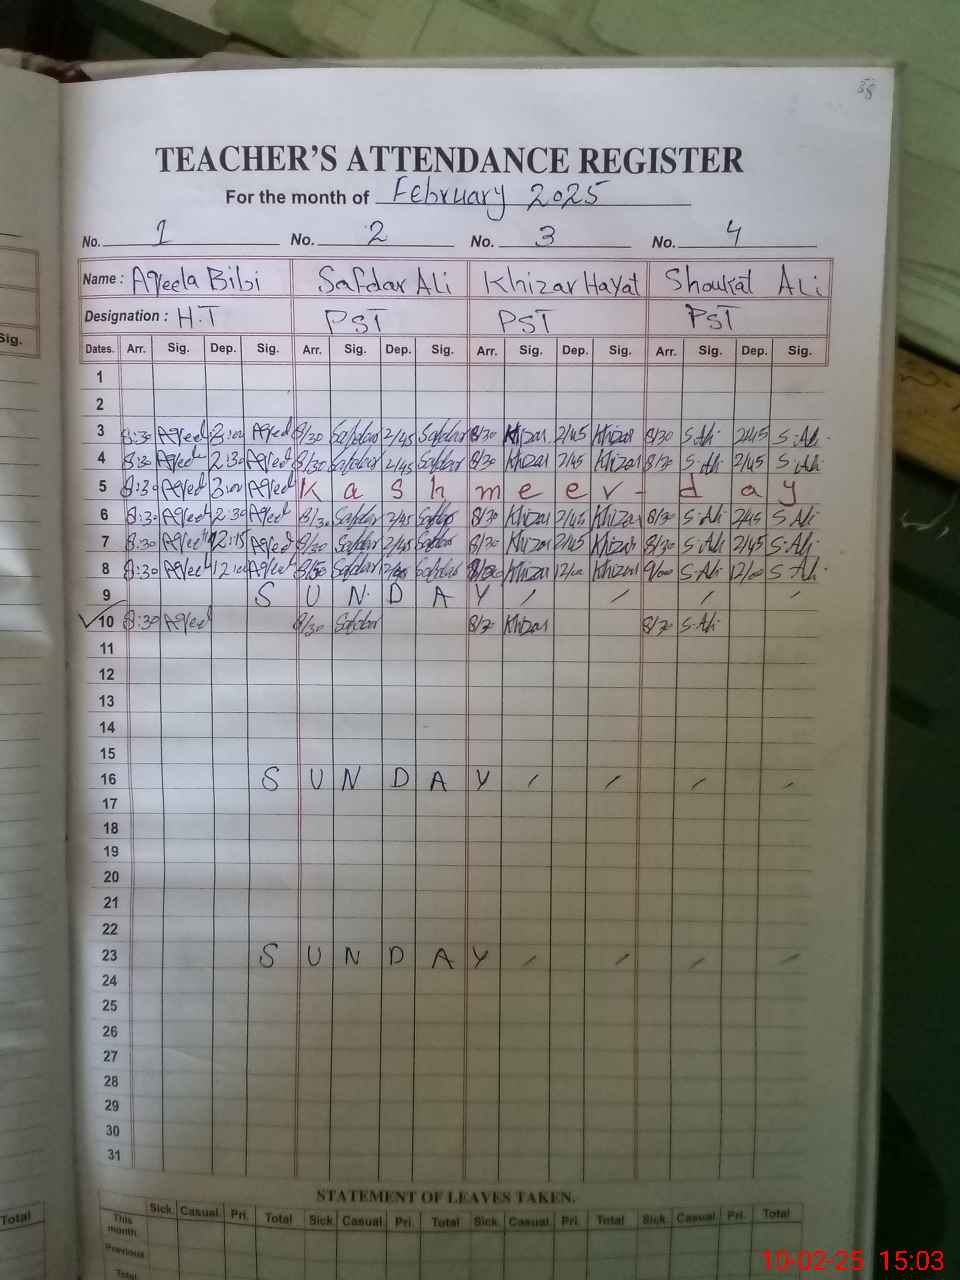 38
TEACHER'S ATTENDANCE REGISTER
For the month of February 2025
No. 1 No. 2 No. 3 No. 4
Name : Aqeela Bibi Safdar Ali Khizar Hayat Shoukat Ali
Designation : H.T PST PST PST
Sig.
Dates. Arr. Sig. Dep. Sig. Arr. Sig. Dep. Sig. Arr. Sig. Dep. Sig. Arr. Sig. Dep. Sig.
1
2
3 8:30 Aqeel Aqeel 8/30 Safdar 2/45 Safdar 8/30 Khizar 2/45 Khizar 8/30 S.Ali 2/45 S.Ali
4 8:30 Aqeel 2:30 Aqeel 8/30 Safdar 2/45 Safdar 8/30 Khizar 2/45 Khizar 8/30 S.Ali 2/45 S.Ali
5 8:30 Aqeel Aqeel K a s h m e e r - d a y
6 8:30 Aqeel 2:30 Aqeel 8/30 Safdar 2/45 Safdar 8/30 Khizar 2/45 Khizar 8/30 S.Ali 2/45 S.Ali
7 8:30 Aqeel 12:15 Aqeel 8/30 Safdar 2/45 Safdar 8/30 Khizar 2/45 Khizar 8/30 S.Ali 2/45 S.Ali
8 8:30 Aqeel 12:00 Aqeel Safdar Safdar Khizar 12/00 Khizar 9/00 S.Ali 12/00 S.Ali
9 S U N D A Y / / / /
10 8:30 Aqeel 8/30 Safdar 8/30 Khizar 8/30 S.Ali
11
12
13
14
15
16 S U N D A Y / / / /
17
18
19
20
21
22
23 S U N D A Y / / / /
24
25
26
27
28
29
30
31
STATEMENT OF LEAVES TAKEN.
Sick. Casual. Pri. Total Sick. Casual. Pri. Total Sick. Casual. Pri. Total Sick. Casual. Pri. Total
This month.
Previous
Total
Total
10-02-25 15:03